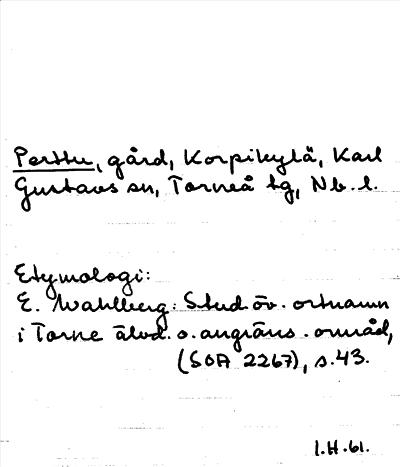 Perttu, gård, Korpikylä, Karl
Gustavs sn, Torneå tg, Nb. l.
Etymologi:
E. Wahlberg: Stud. öv. ortnamn
i Torne älvd. o. angräns. områd,
(SOA 2267), s. 43.
I.H. 61.